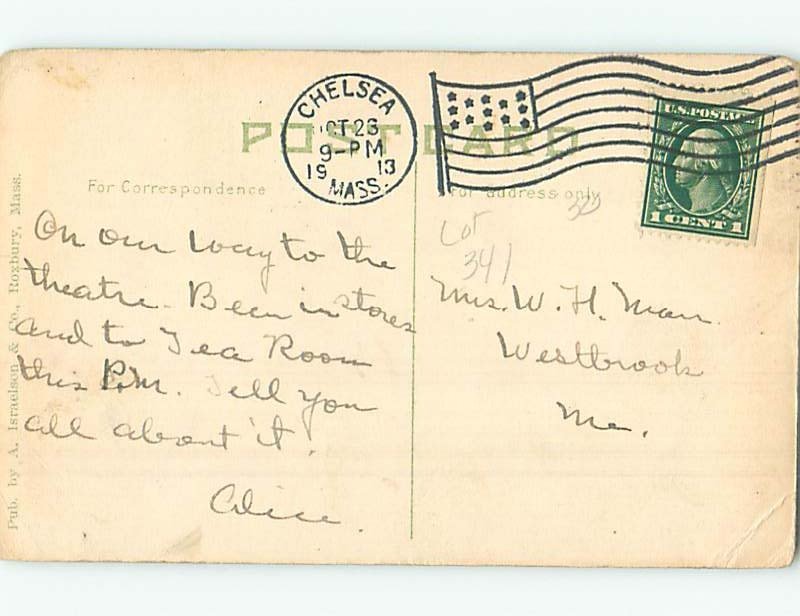 POST CARD
CHELSEA
OCT 23
9-PM
19 13
MASS.
U.S. POSTAGE
1 CENT 1
For Correspondence
For address only
30
Lot
341
On our way to the
theatre. Been in stores
and to Tea Room
this P.M. Tell you
all about it.
Alice.
Mrs. W. H. Marr.
Westbrook
Me.
Pub. by A. Israelson & Co., Roxbury, Mass.